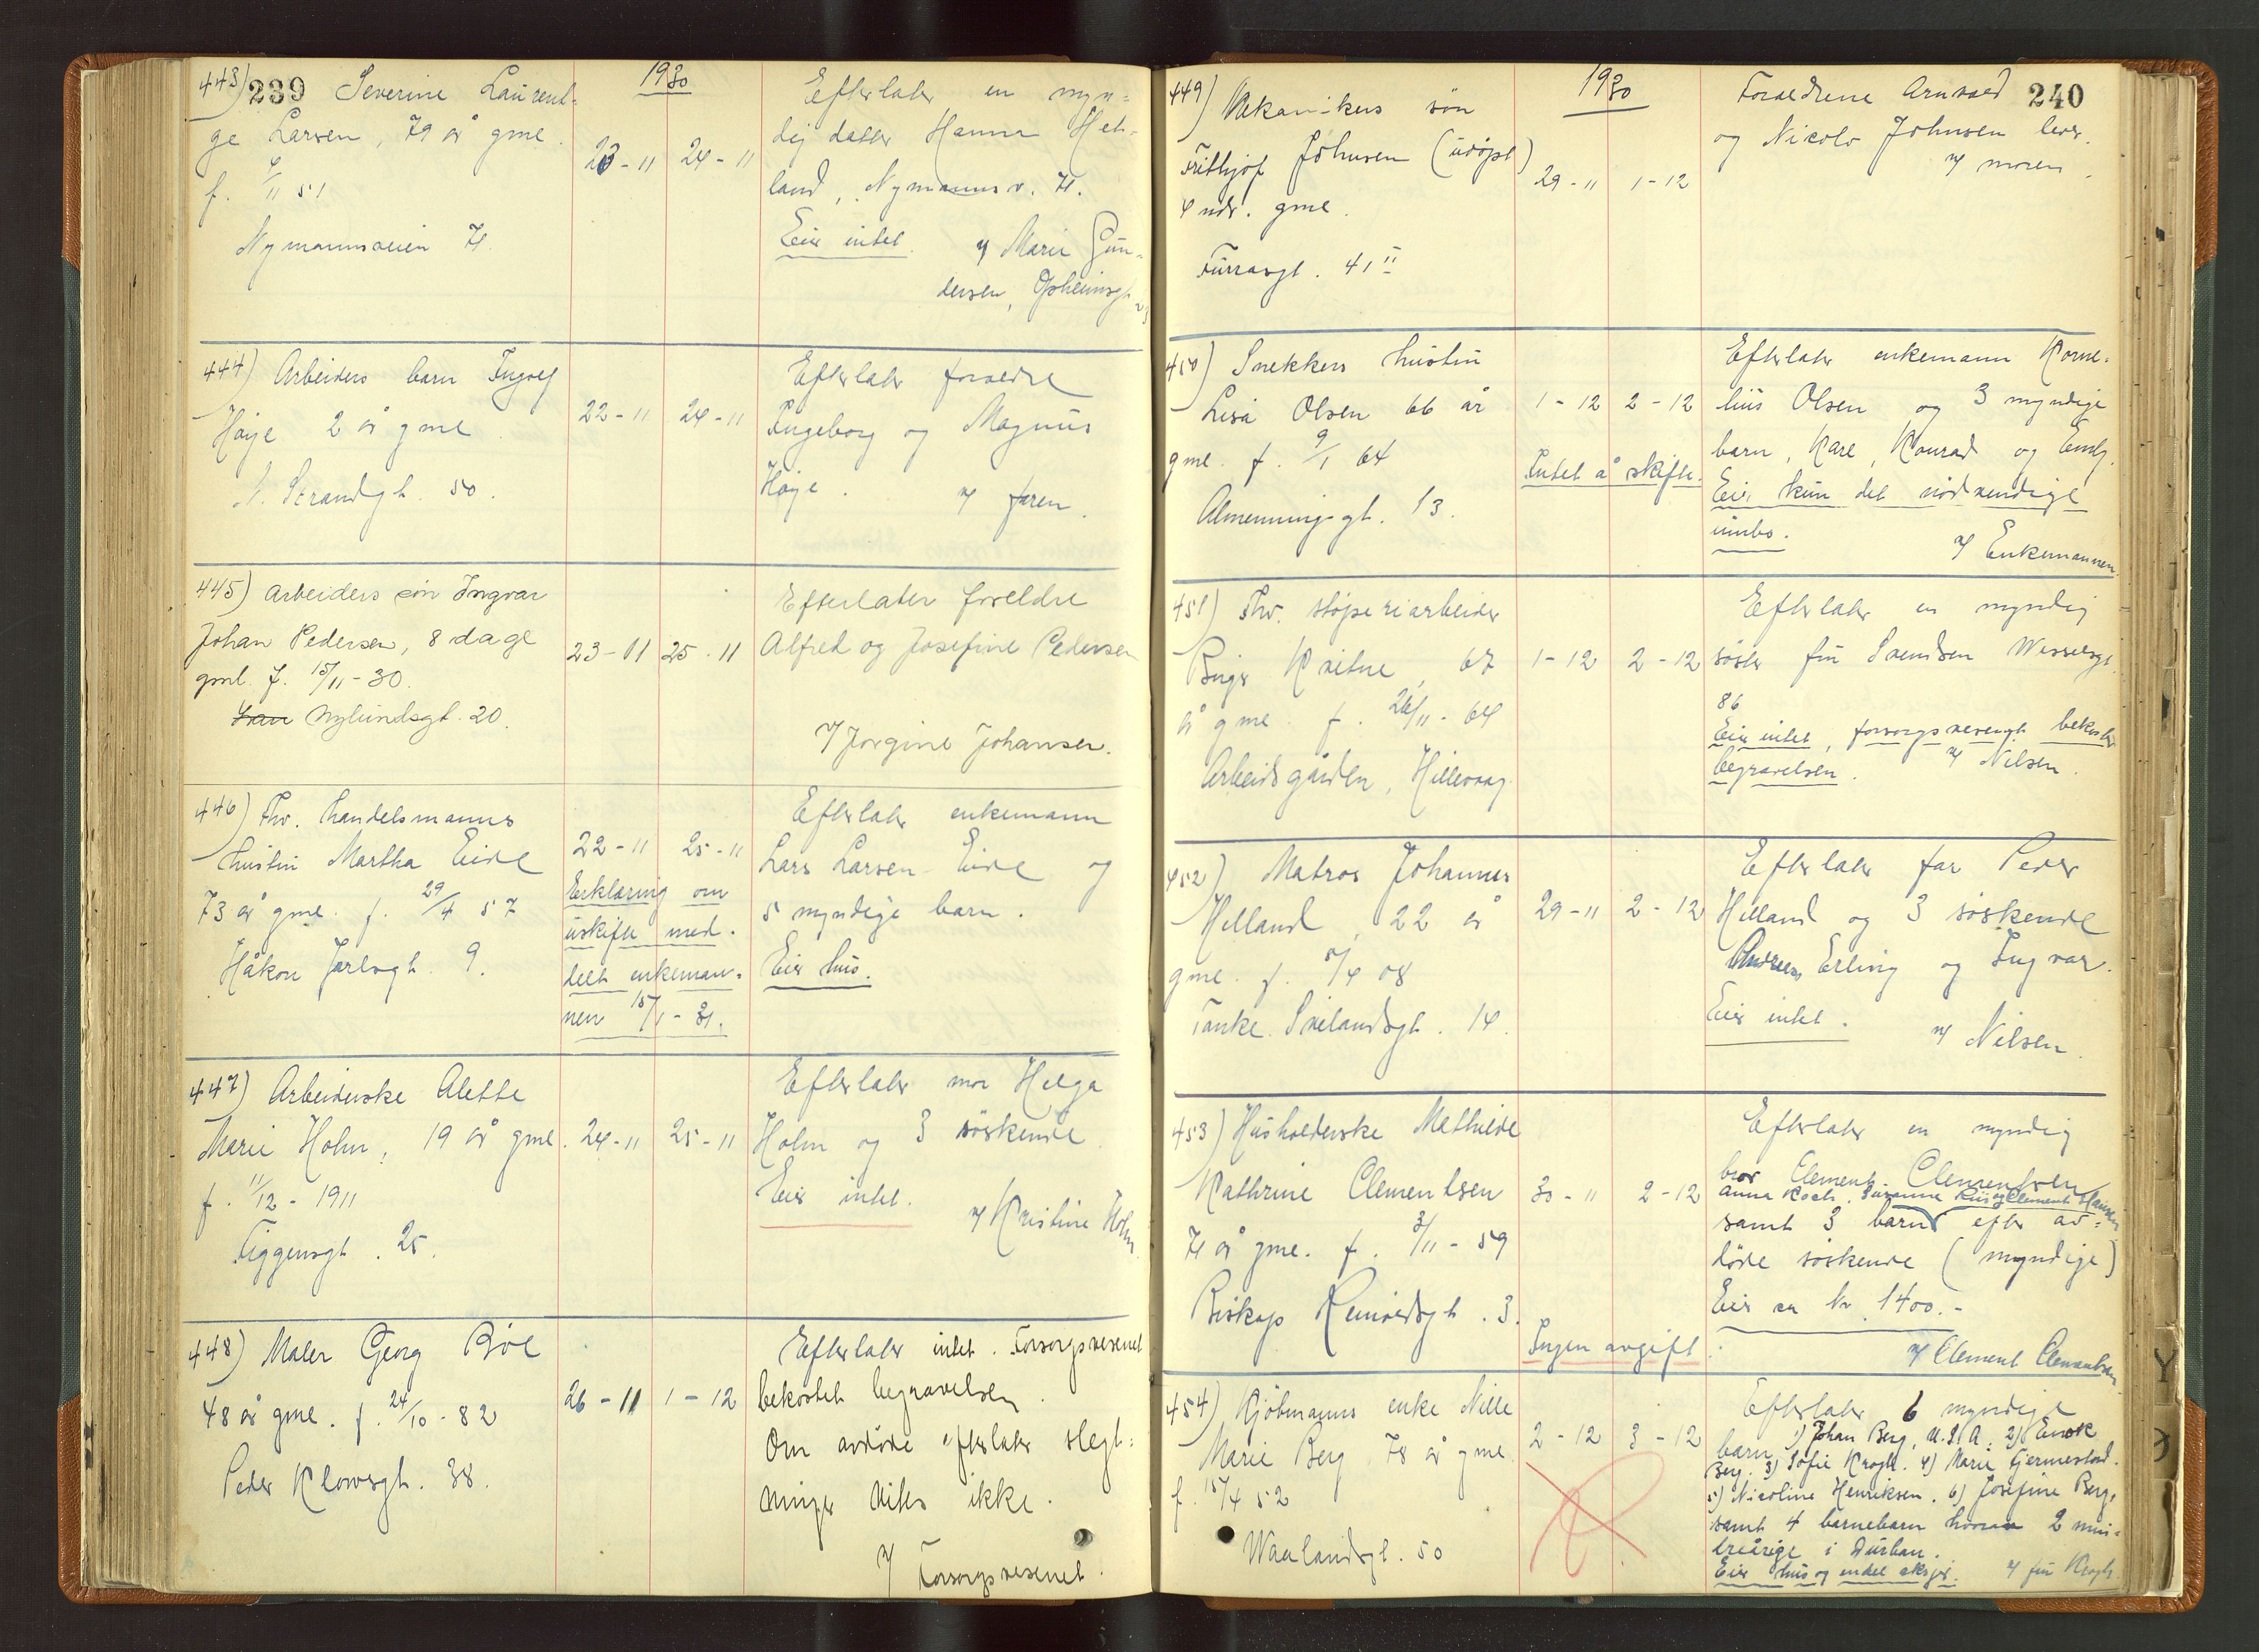 239
1930
443) Severine Laurent-
ge Larsen, 79 år gml.
f. 4/11 51
Nymannsveien 71.
23-11 24-11
Efterlater en myn-
dig datter Hanna Het-
land, Nymannsv. 71.
Eier intet. v/ Marie Gun-
dersen, Opheimsgt 23
444) Arbeiders barn Ingolf
Høje 2 år gml
N. Strandgt. 50.
22-11 24-11
Efterlater forældre
Ingeborg og Magnus
Høje. v/ faren.
445) Arbeiders søn Ingvar
Johan Pedersen, 8 dage
gml. f. 15/11-30.
Nylundsgt. 20.
23-11 25-11
Efterlater foreldre
Alfred og Josefine Pedersen
v/ Jorgine Johansen.
446) Fhv. handelsmanns
hustru Martha Eide
73 år gml. f. 29/4 57
Håkon Jarlsgt. 9.
22-11 25-11
Erklæring om
uskifte med-
delt enkeman-
nen 15/1-31.
Efterlater enkemann
Lars Larsen Eide og
5 myndige barn.
Eier hus.
447) Arbeiderske Alette
Marie Holm, 19 år gml.
f. 11/12-1911
Tiggensgt. 25.
24-11 25-11
Efterlater mor Helga
Holm og 3 søskende
Eier intet.
v/ Kristine Holm.
448) Maler Georg Böe
48 år gml. f. 24/10-82
Peder Klowsgt. 38.
26-11 1-12
Efterlater intet. Forsorgsvesenet
bekostet begravelsen.
Om avdöde efterlater slegt-
ninger vites ikke.
v/ Forsorgsvesenet.
240
1930
449) Mekanikus søn
Frithjof Johnsen (udøpt)
4 mdr. gml.
Furrasgt. 41 II
29-11 1-12
Forældrene Arnvald
og Nicolo Johnsen lever.
v/ moren.
450) Snekkers hustru
Lisa Olsen 66 år
gml. f. 9/1 64
Almenningsgt. 13.
1-12 2-12
Intet å skifte.
Efterlater enkemann Korne-
lius Olsen og 3 myndige
barn, Kare, Konrad og Emly.
Eier kun det nödvendige
innbo.
v/ Enkemannen.
451) Fhv. støperiarbeider
Birger Kvitne, 67
år gml. f. 26/11-64
Arbeidsgården, Hillevaag
1-12 2-12
Efterlater en myndig
søster fru Svendsen Wesselsgt.
86
Eier intet, forsorgsvesenet bekoster
begravelsen. v/ Nilsen.
452) Matros Johannes
Helland, 22 år
gml. f. 5/4 08
Tanke Svilandsgt. 14.
29-11 2-12
Efterlater far Peder
Helland og 3 søskende
Andreas Erling og Ingvar.
Eier intet.
v/ Nilsen.
453) Husholderske Mathilde
Kathrine Clementsen
71 år gml. f. 3/11-59
Biskop Reinaldsgt. 3.
30-11 2-12
Ingen avgift
Efterlater en myndig
bror Clement Clementsen
Anna Koch, Susanne Riis og Clement Hansen
samt 3 barn efter av-
døde søskende (myndige)
Eier ca kr 1400.-
v/ Clement Clementsen.
454) Kjöbmanns enke Nille
Marie Berg 78 år gml
f. 15/4 52
Waalandsgt. 50
2-12 3-12
Efterlater 6 myndige
barn 1) Johan Berg, U.S.A. 2) Enok
Berg. 3) Sofie Krogh. 4) Marie Fjermestad.
5) Nicoline Henriksen. 6) Josefine Berg,
samt 4 barnebarn hvorav 2 min-
dreårige i Durban.
Eier hus og endel aksjer. v/ fru Krogh.